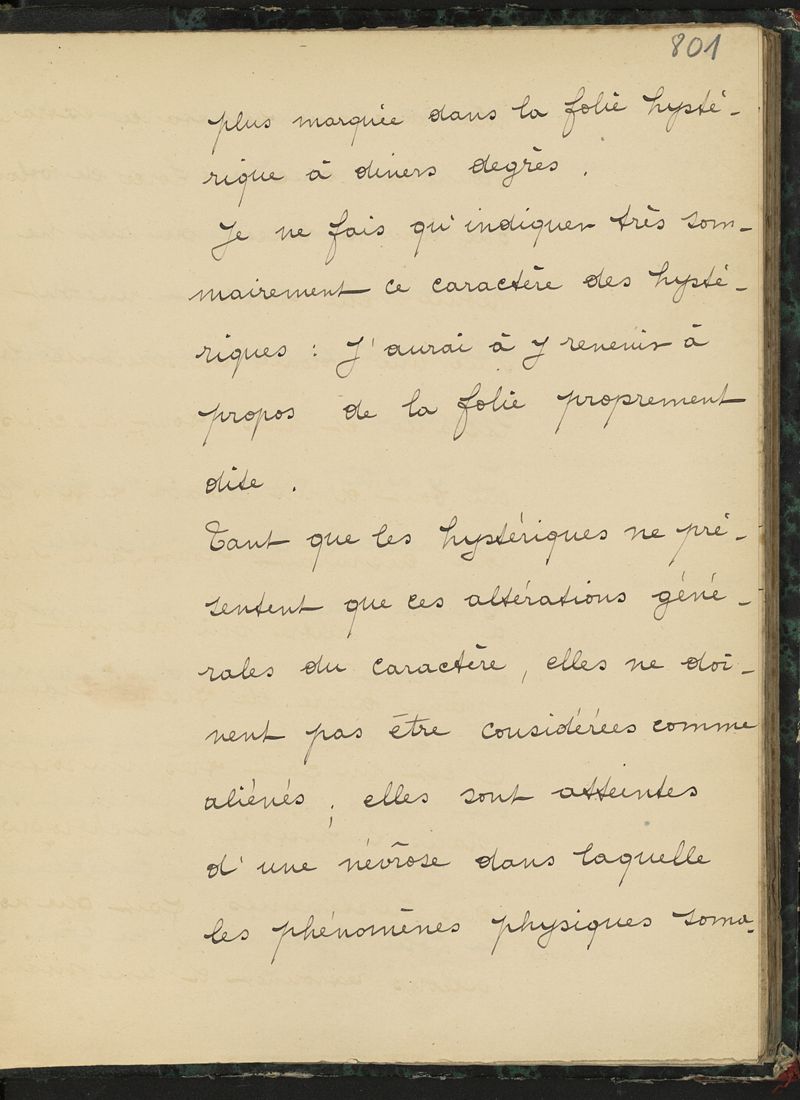 801
plus marquée dans la folie hysté-
rique à divers degrès.
Je ne fais qu'indiquer très som-
mairement ce caractère des hysté-
riques : J'aurai à y revenir à
propos de la folie proprement
dite.
Tant que les hystériques ne pré-
sentent que ces altérations géné-
rales du caractère, elles ne doi-
vent pas être considérées comme
aliénés ; elles sont atteintes
d'une névrose dans laquelle
les phénomènes physiques soma-